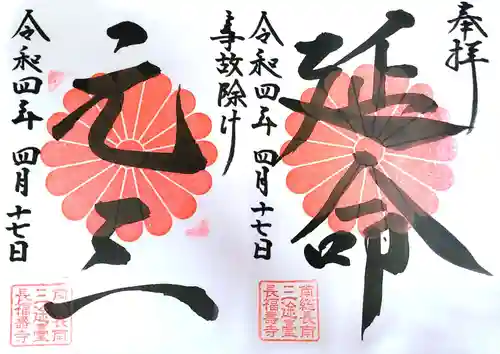 奉拝
延命
令和四年 四月 十七日
事故除け
元三
令和四年 四月 十七日
三途臺
長福壽寺
三途臺
長福壽寺